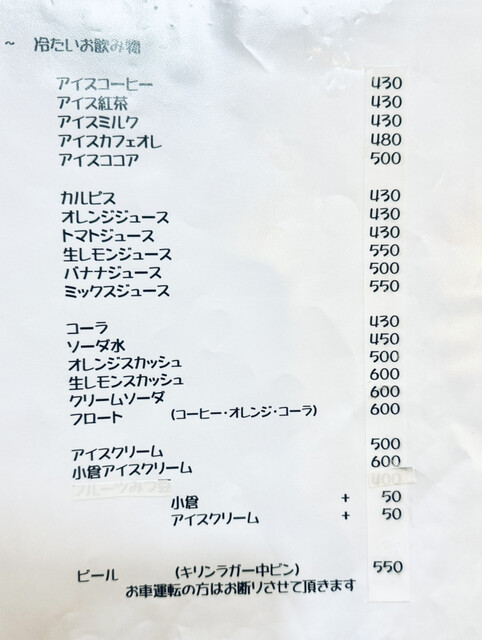 ~ 冷たいお飲み物
アイスコーヒー 430
アイス紅茶 430
アイスミルク 430
アイスカフェオレ 480
アイスココア 500
カルピス 430
オレンジジュース 430
トマトジュース 430
生レモンジュース 550
バナナジュース 500
ミックスジュース 550
コーラ 430
ソーダ水 450
オレンジスカッシュ 500
生レモンスカッシュ 600
クリームソーダ 600
フロート (コーヒー・オレンジ・コーラ) 600
アイスクリーム 500
小倉アイスクリーム 600
小倉 + 50
アイスクリーム + 50
ビール (キリンラガー中ビン) 550
お車運転の方はお断りさせて頂きます